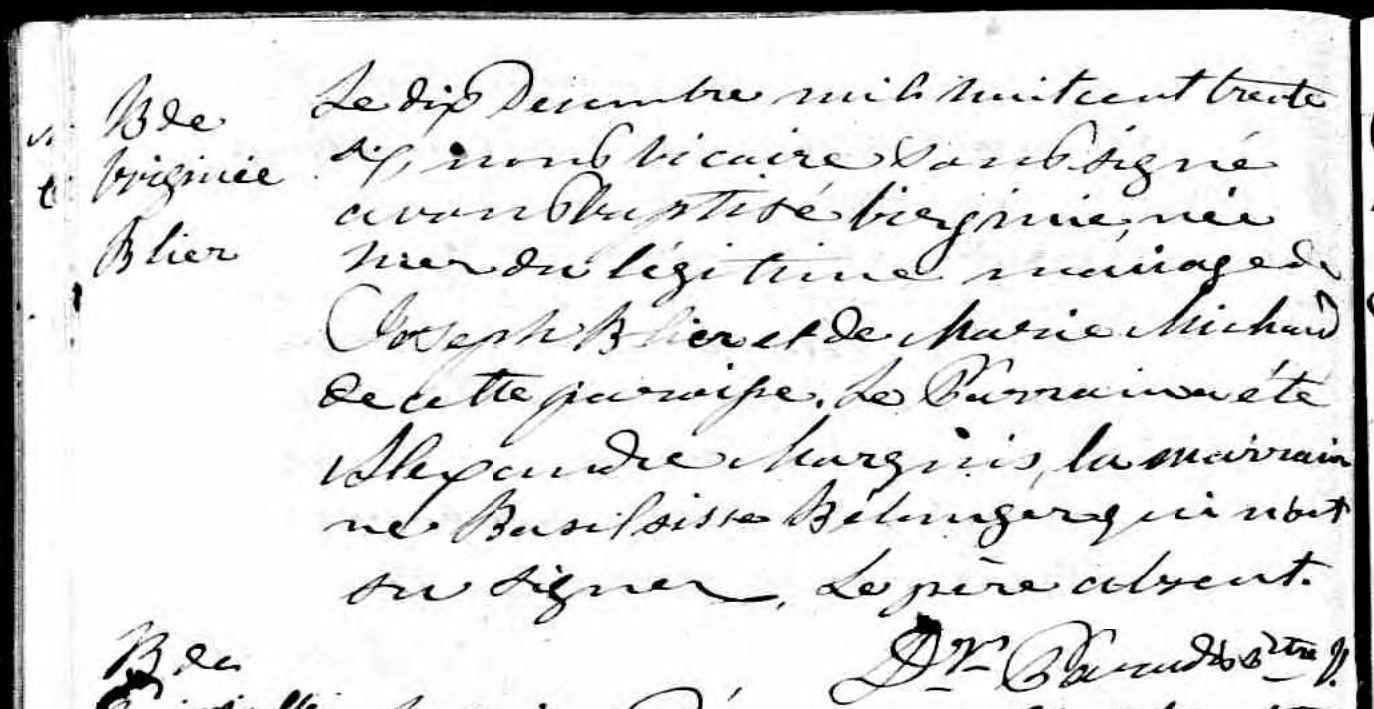 B de
Virginie
Blier
Le dix Decembre mil huit cent trente
six, nous vicaire soussigné
avons baptisé Virginie, née
hier du légitime mariage de
Joseph Blier et de Marie Michaud
de cette paroisse. Le Parrain a été
Alexandre Marquis, la marrain
ne Basilisse Bélanger qui n'ont
su signer. Le père absent.
Paradis Ptre V.
B de